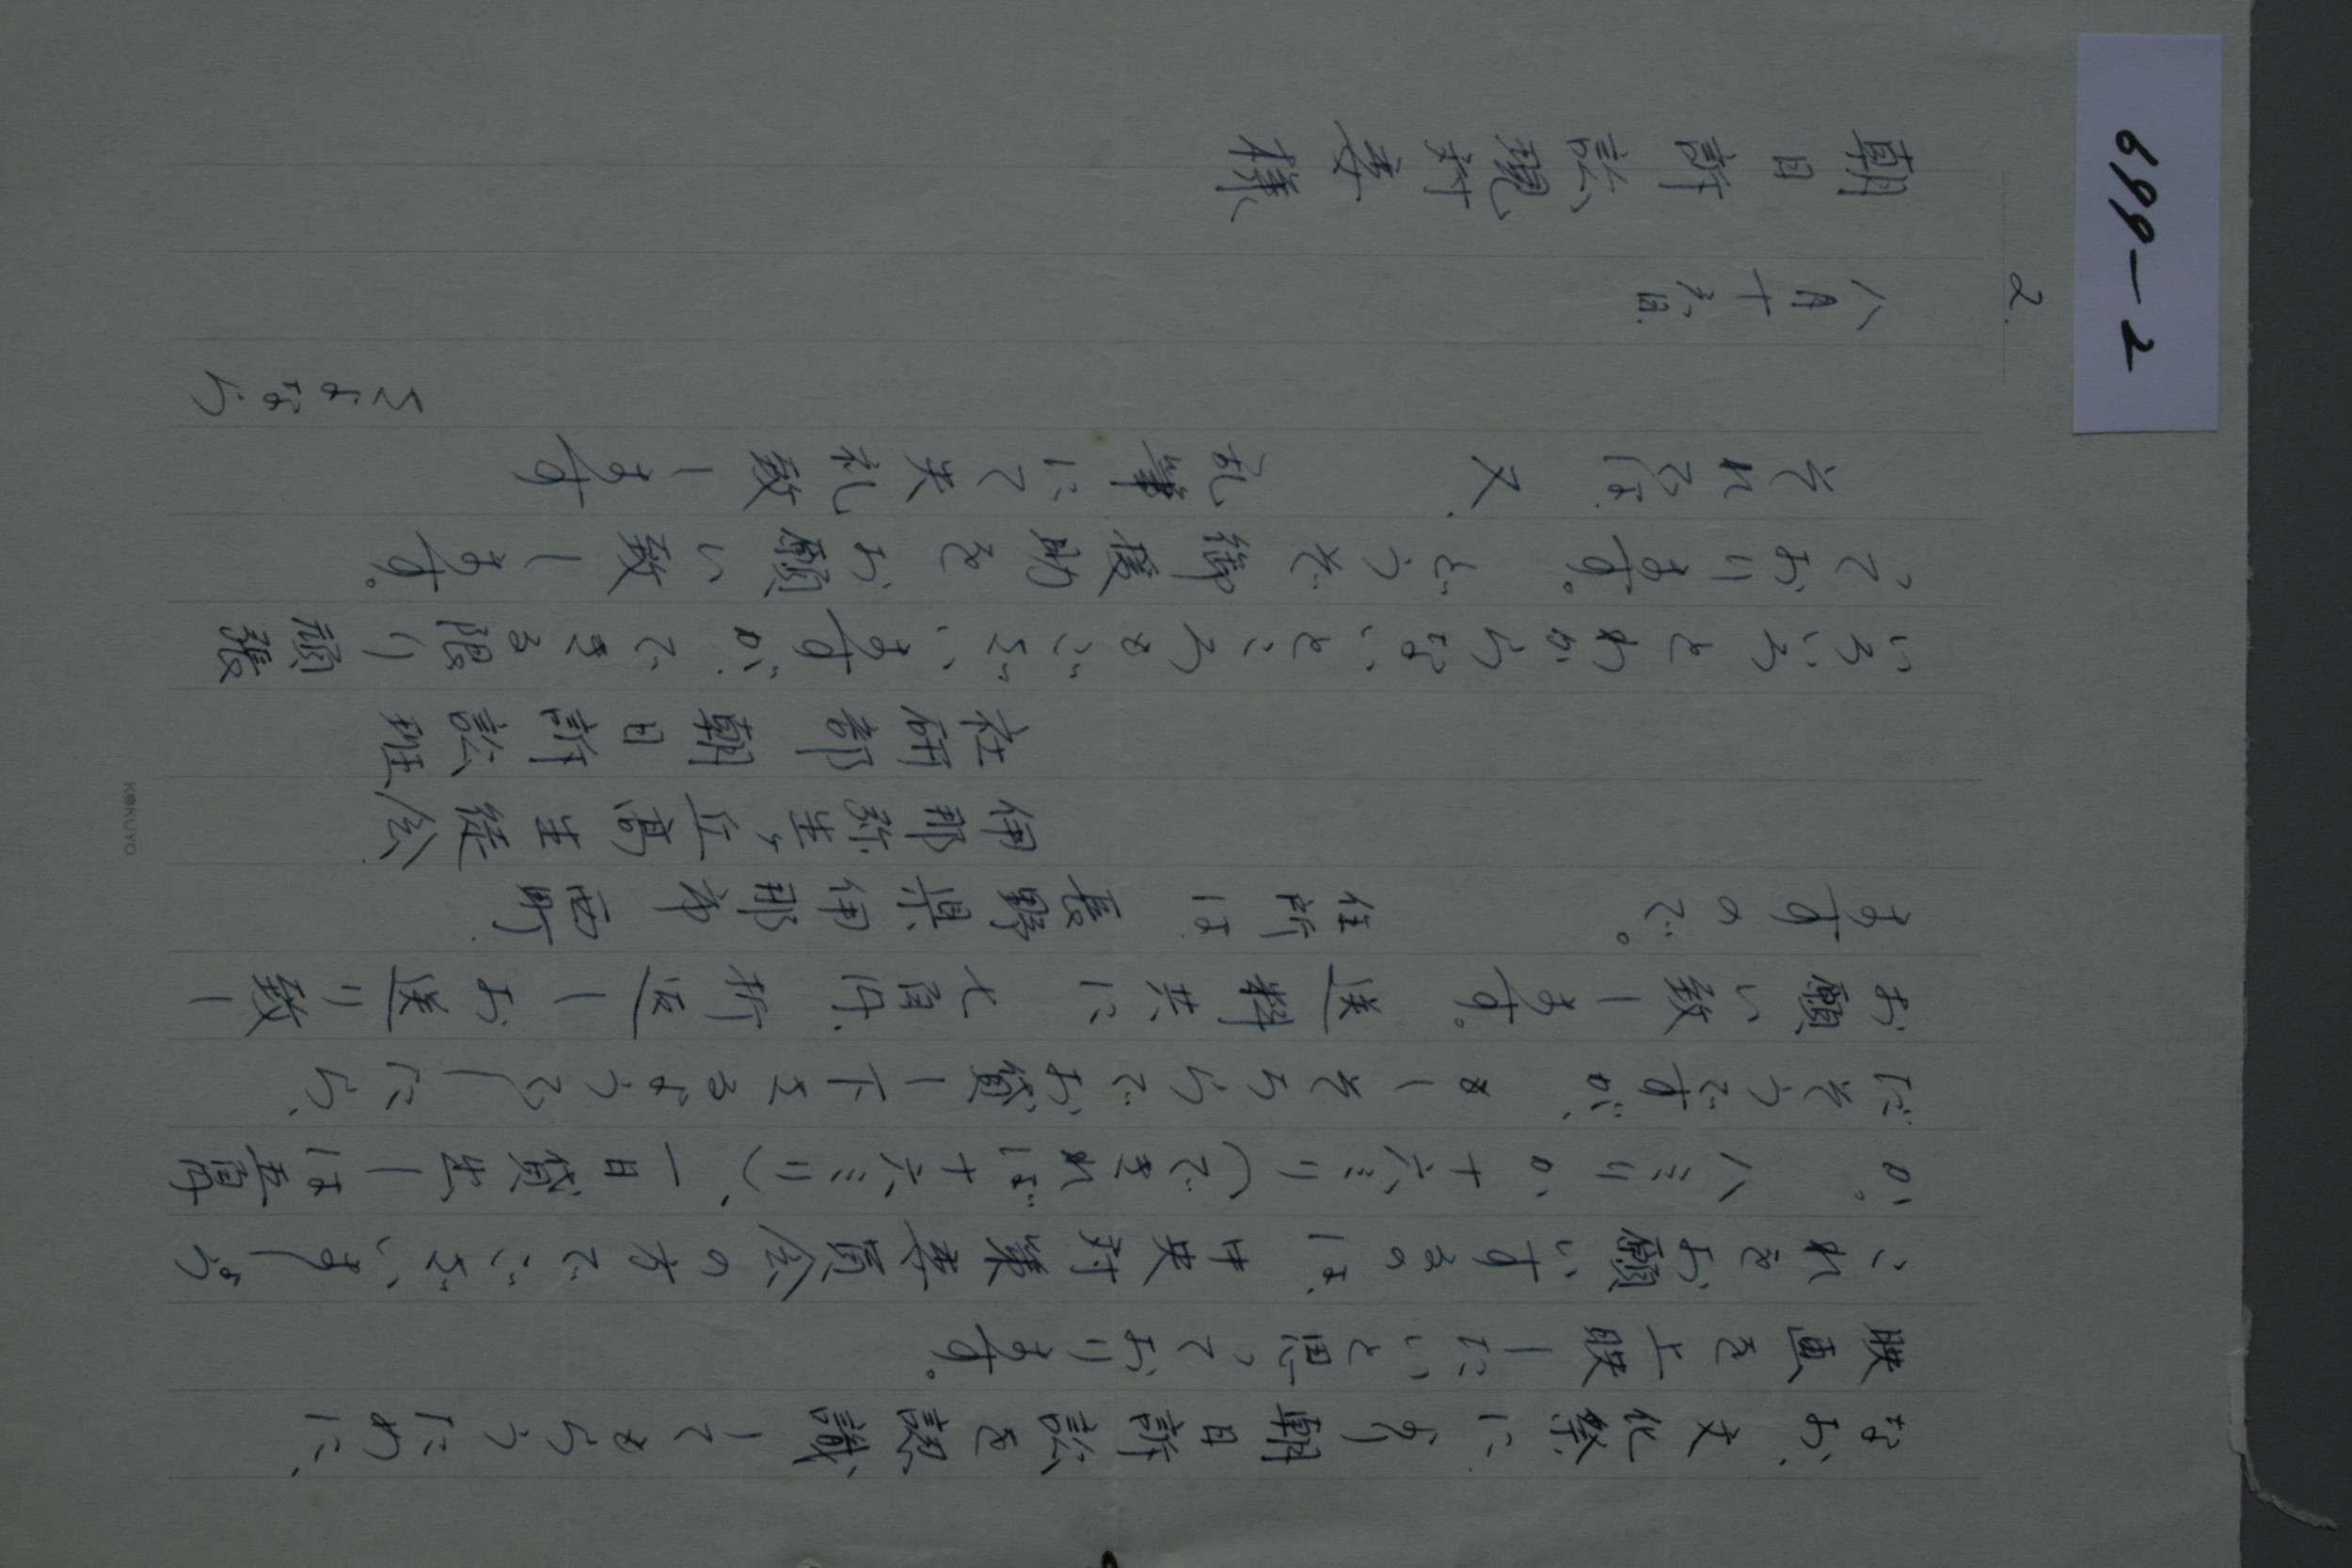 699-2
2.
なお、文化祭に、より朝日訴訟を認識してもらうために、
映画を上映したいと思っております。
これをお願いするのは、中央対策委員会の方でございましょう
か。八ミリか十六ミリ(できれば十六ミリ)、一日貸出しは五百円
だそうですが、もしそちらでお貸し下さるようでしたら、
お願い致します。送料共に七百円、折返しお送り致し
ますので。 住所は 長野県伊那市西町
伊那弥生ヶ丘高生徒会
社研部 朝日訴訟班
いろいろとわからないところもございますが、できる限り頑張
っております。どうぞ御援助をお願い致します。
それでは、又. 乱筆にて失礼致します
さよなら
八月十六日.
朝日訴訟現対委様
KOKUYO